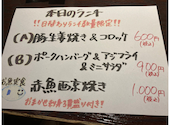 本日のランチ
!!日替わりランチ数量限定!!
(A) 豚生姜焼き&コロッケ 600円
(税込)
(B) ポークハンバーグ&アジフライ
&ミニサラダ 900円
(税込)
赤魚西京焼き 1,000円
(税込)